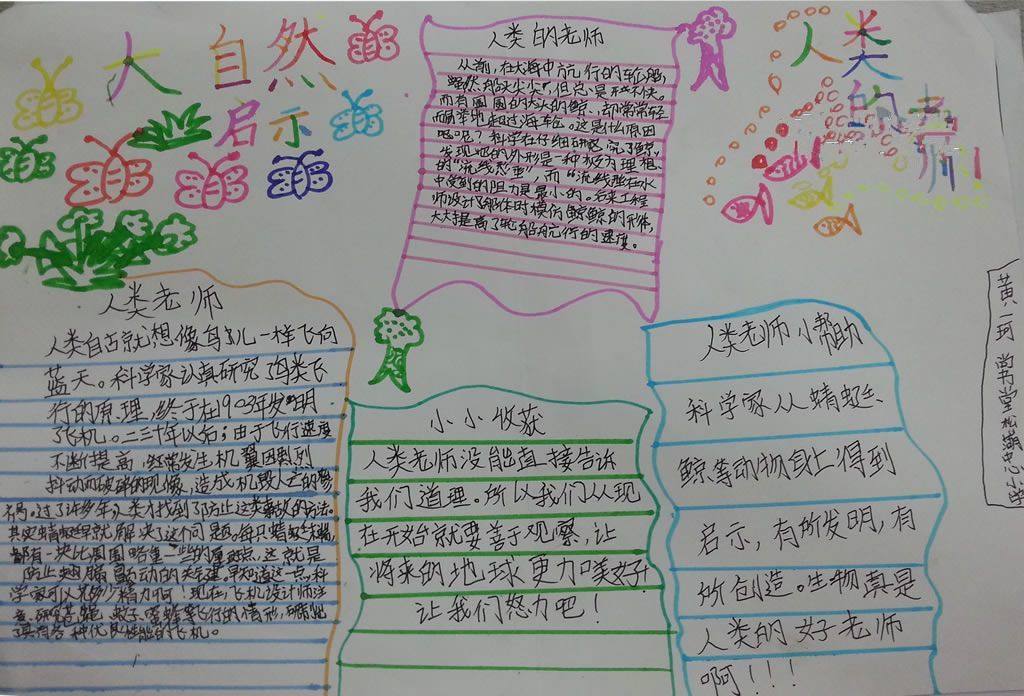 大自然
启示
人类的老师
从前，在大海中航行的车仑船，
虽然船头尖尖，但总是开不快。
而有圆圆的大头的鲸，却常常轻
而举地超过海车仑。这是什么原因
呢？科学在仔细研究了鲸，
发现她的外形是一种极为理想
的"流线型"，而"流线型"在水
中受到的阻力是最小的。后来工程
师设计船体时模仿鲸的形体，
大大提高了轮船航行的速度。
人类
的老
师！
人类老师
人类自古就想像鸟儿一样飞向
蓝天。科学家认真研究了鸟类飞
行的原理，终于在1903年发明
了飞机。二三十年以后，由于飞行速度
不断提高，经常发生机翼因剧烈
抖动而破碎的现像，造成机毁人亡的惨
祸。过了许多年，人类才找到了防止这类事故的方法。
其实蜻蜓早就解决了这个问题。每只蜻蜓翅膀
都有一块比周围略重一些的厚斑点，这就是
防止翅膀颤动的关键。早知道这一点，科
学家可以少花多少精力啊！现在，飞机设计师注
意研究苍蝇、蚊子、蜜蜂等飞行的情形，研制出
了具有各种优良性能的飞机。
小小收获
人类老师没能直接告诉
我们道理。所以我们从现
在开始就要善于观察，让
将来的地球更加美好！
让我们努力吧！
人类老师小帮助
科学家从蜻蜓、
鲸等动物身上得到
启示，有所发明，有
所创造。生物真是
人类的好老师
啊！！！
黄一珂 尚书堂松湖中心小学